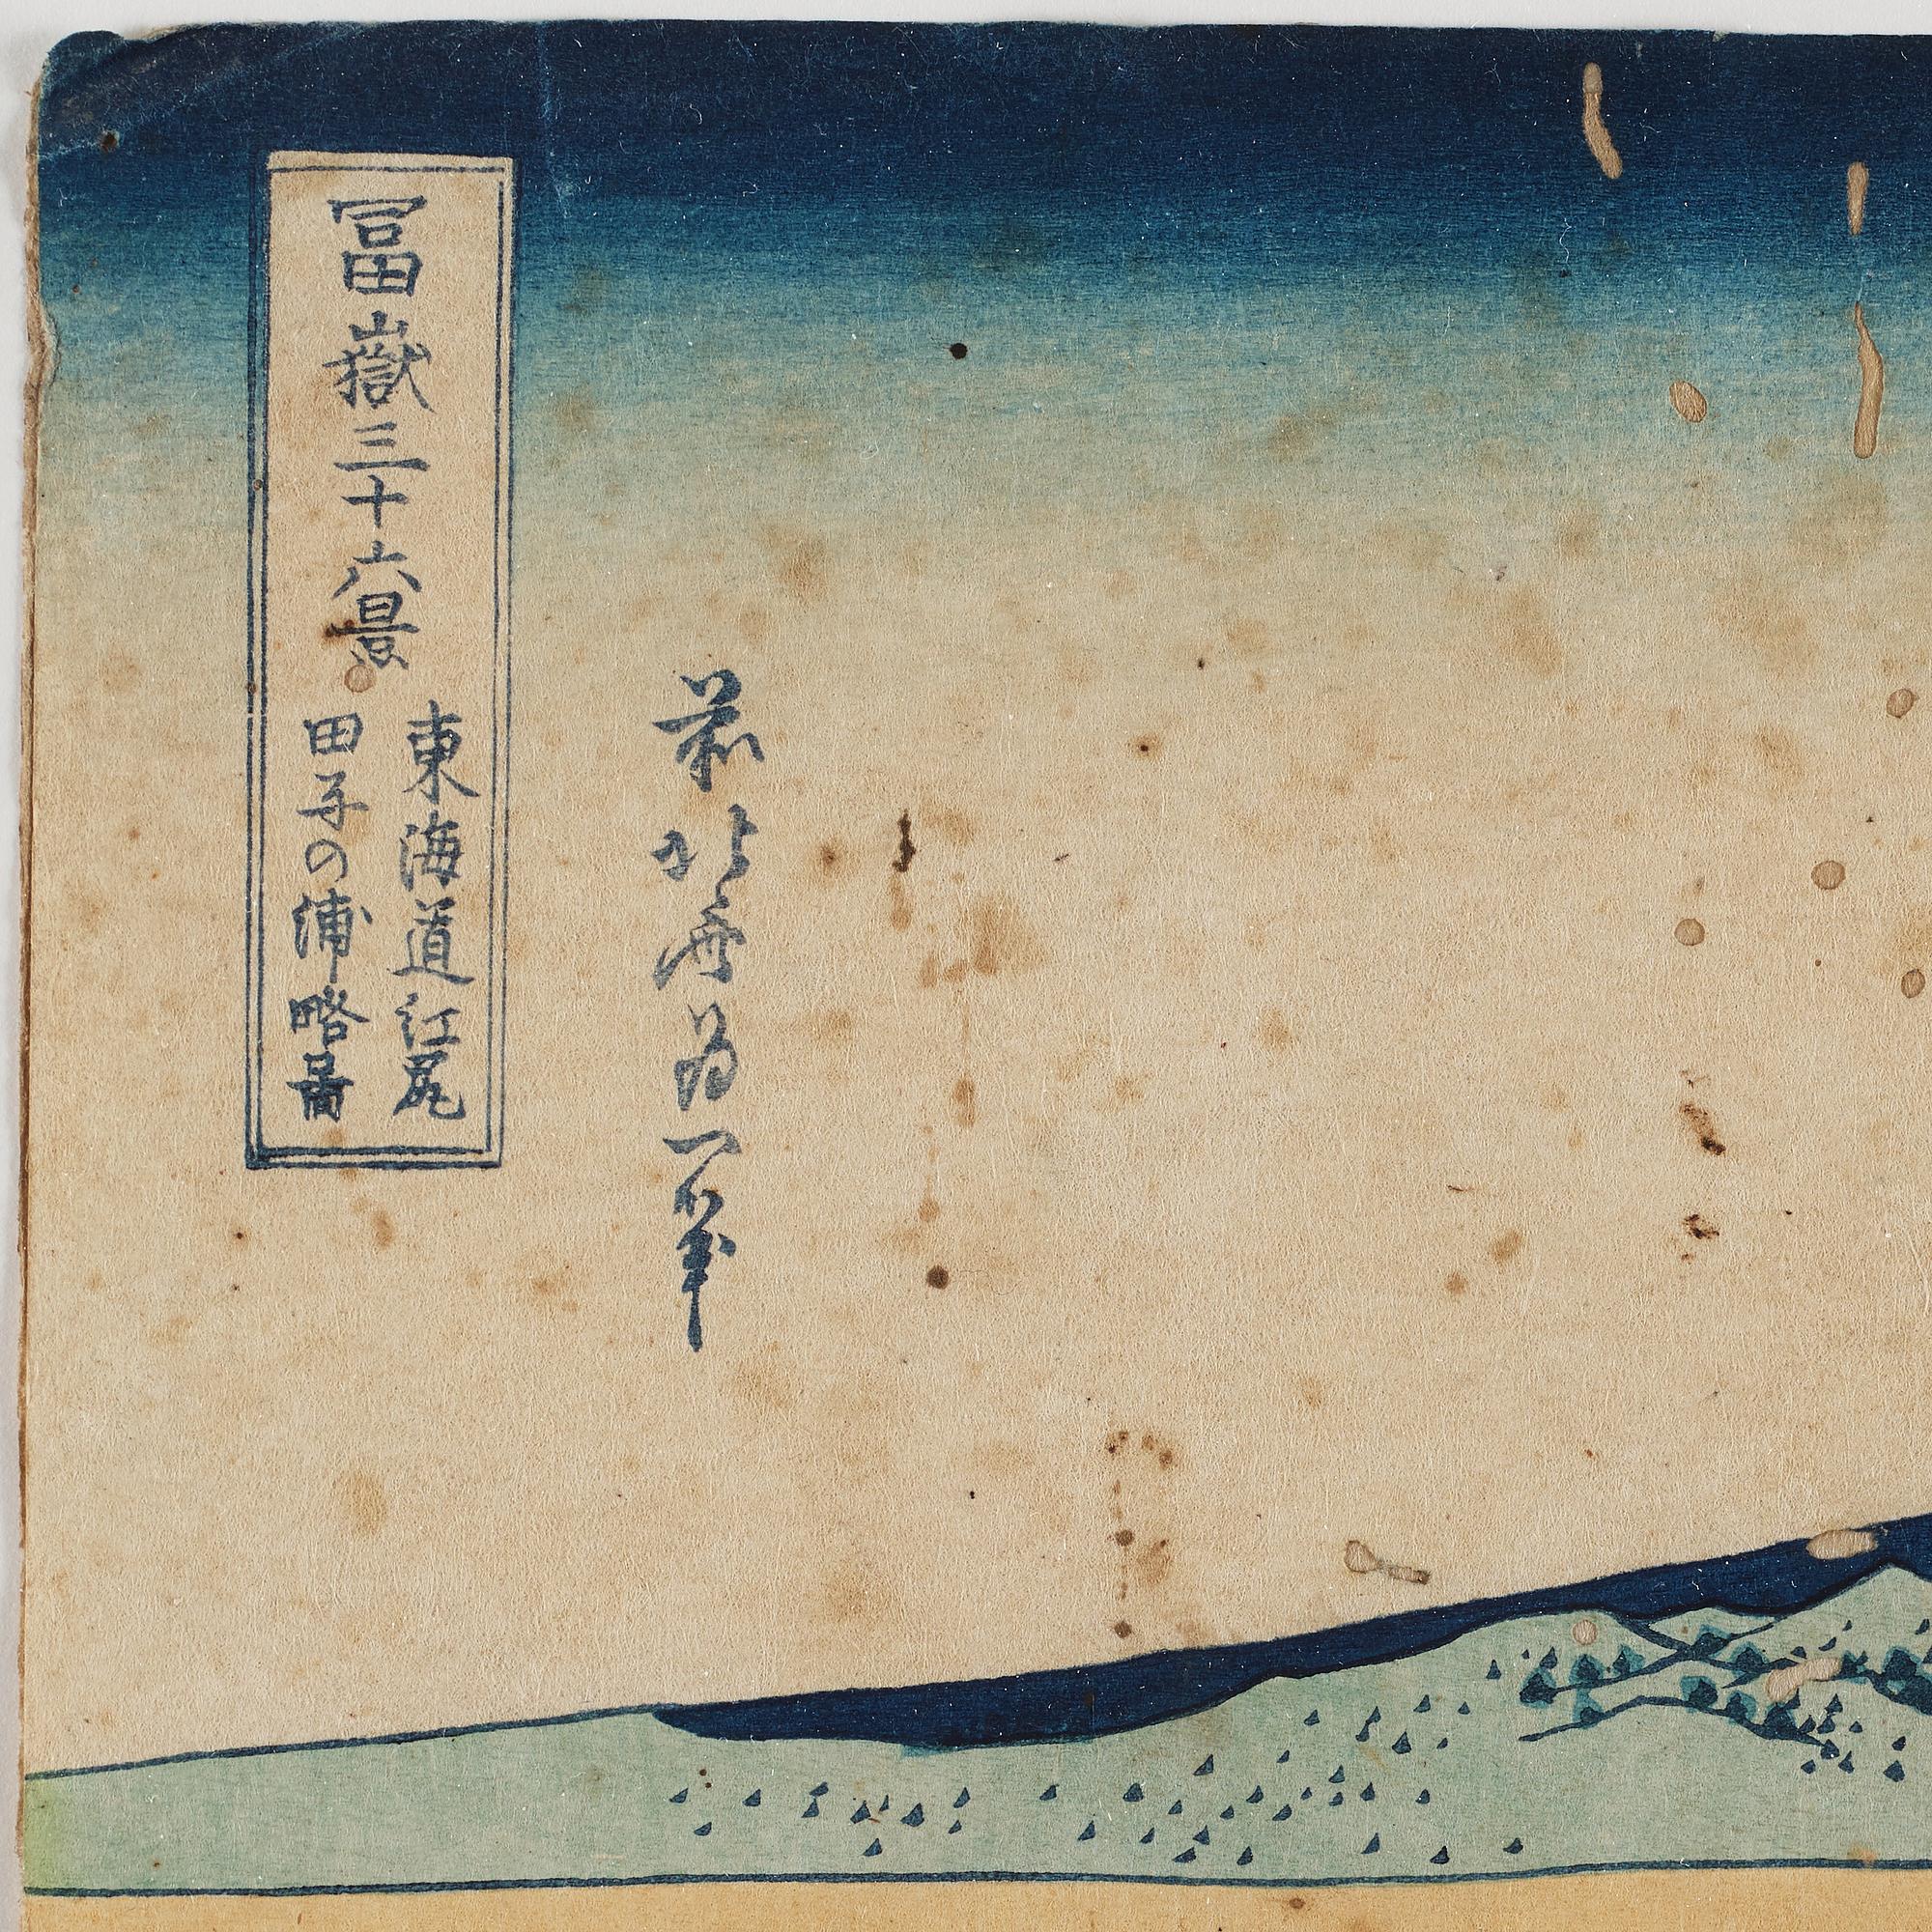 冨嶽三十六景
東海道江尻
田子の浦略圖
前北斎為一筆